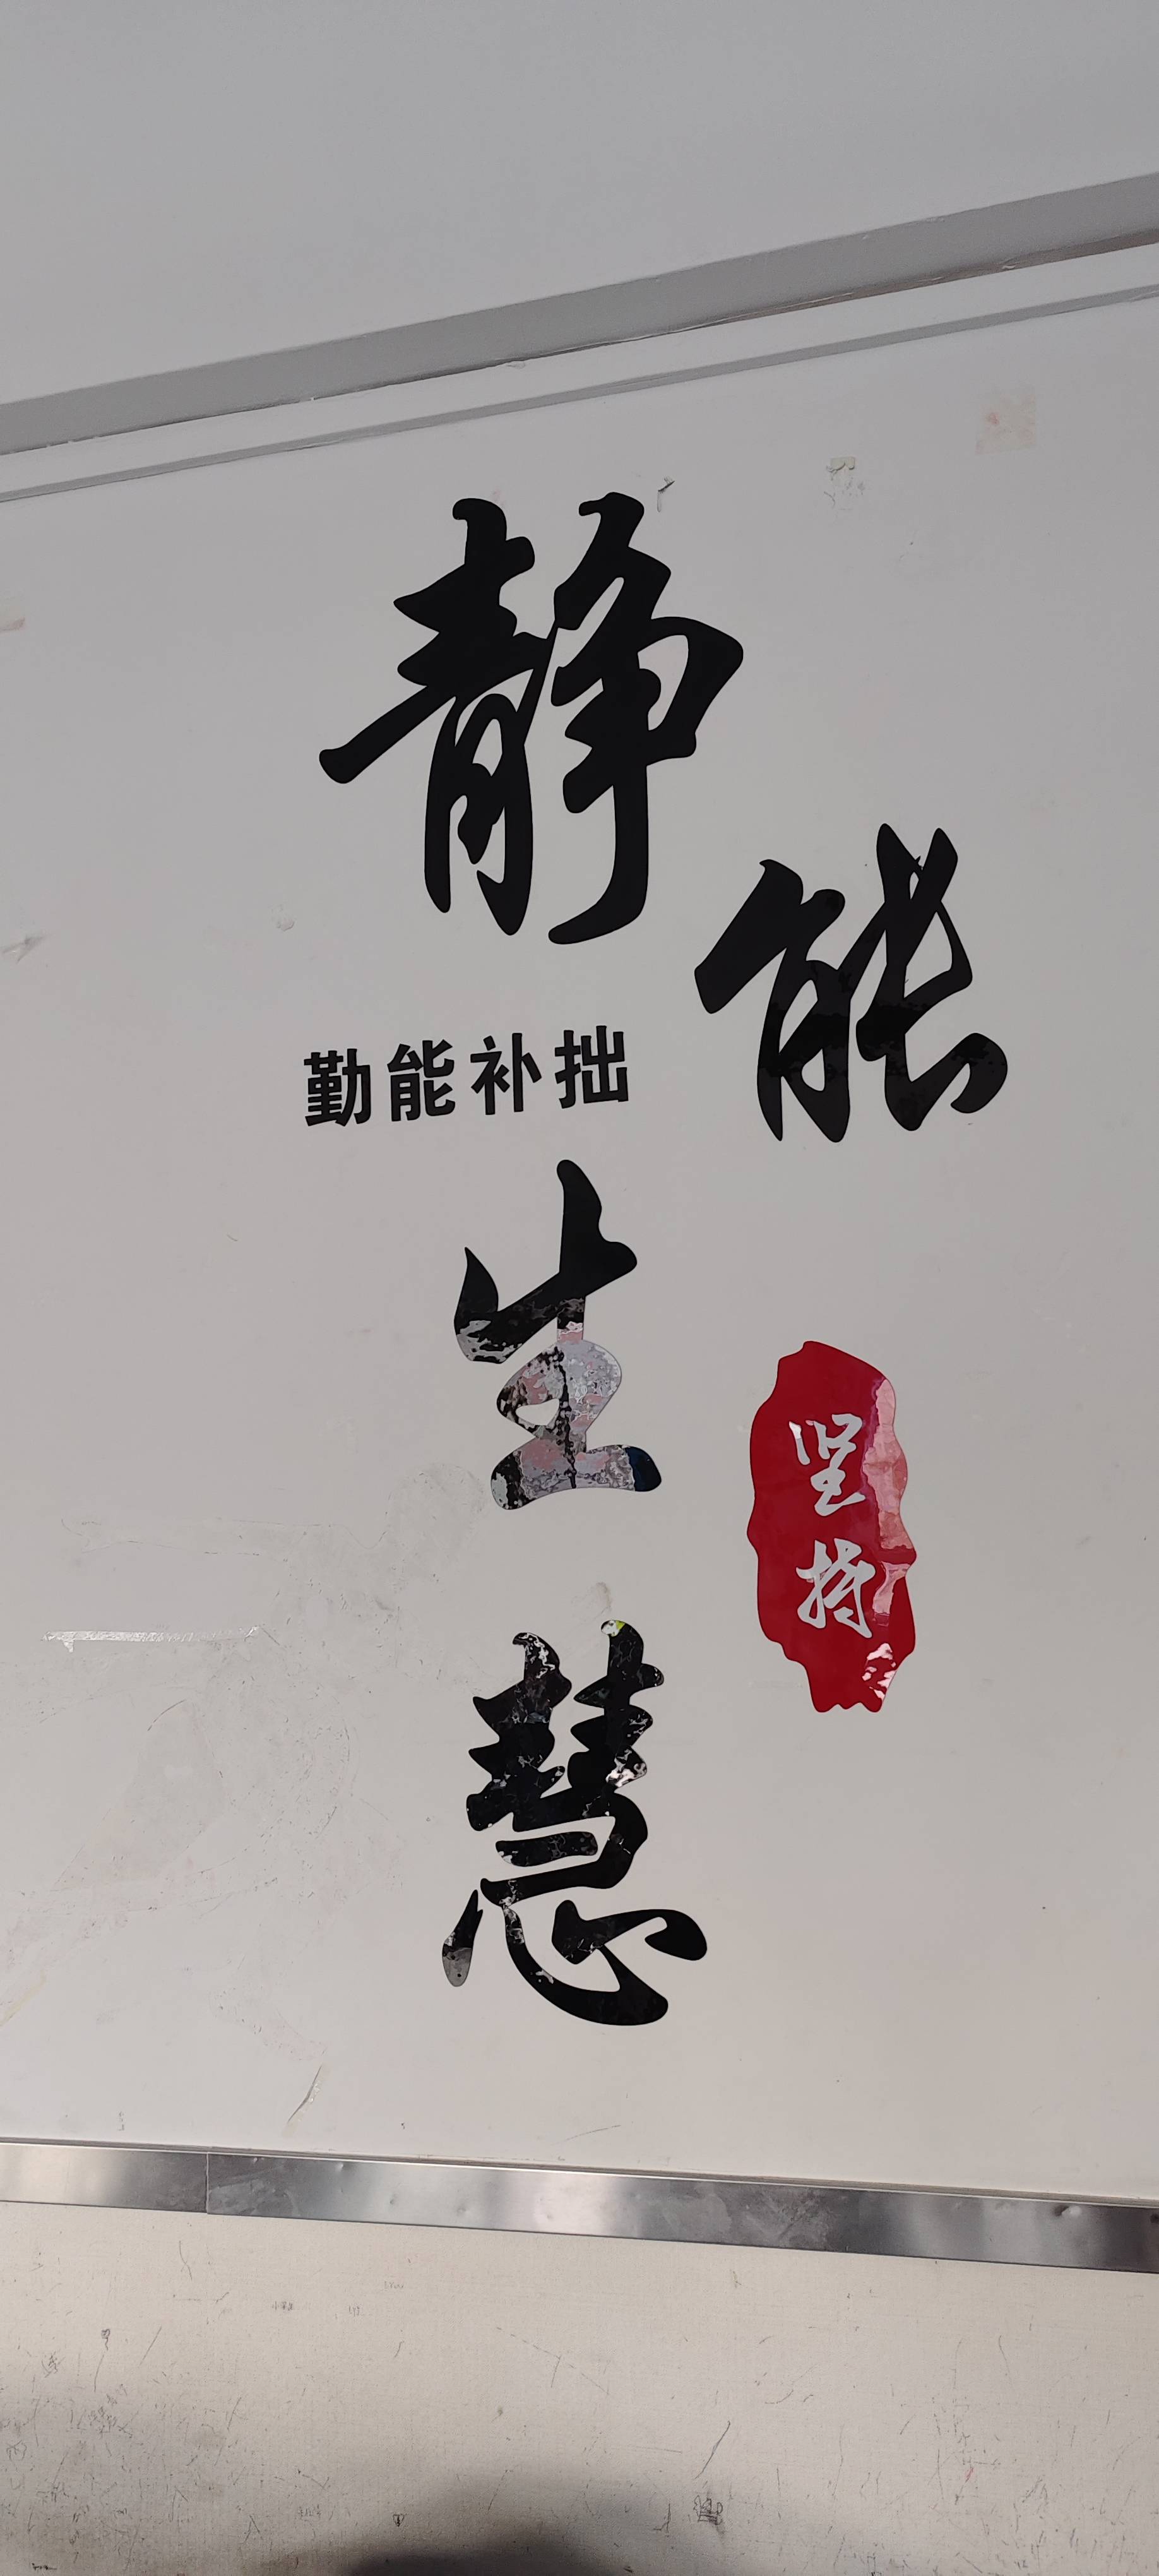 静能生慧
勤能补拙
坚持